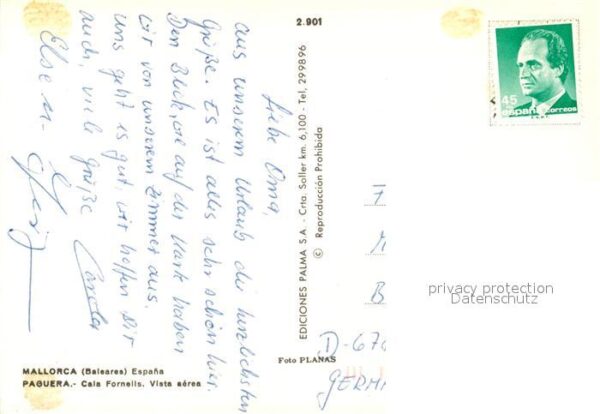 2.901
Liebe Oma,
aus unserem Urlaub die herzlichsten
Grüße. Es ist alles sehr schön hier.
Den Blick, wie auf der Karte haben
wir von unserem Zimmer aus.
Uns geht es gut, wir hoffen Dir
auch, viele Grüße
Carola
Else u.
EDICIONES PALMA S.A. - Crta. Soller km. 6,100 - Tel. 299896
© Reproducción Prohibida
45
españa correos
F
M
B
D-670
GERM
privacy protection
Datenschutz
Foto PLANAS
MALLORCA (Baleares) España
PAGUERA.- Cala Fornells. Vista aérea